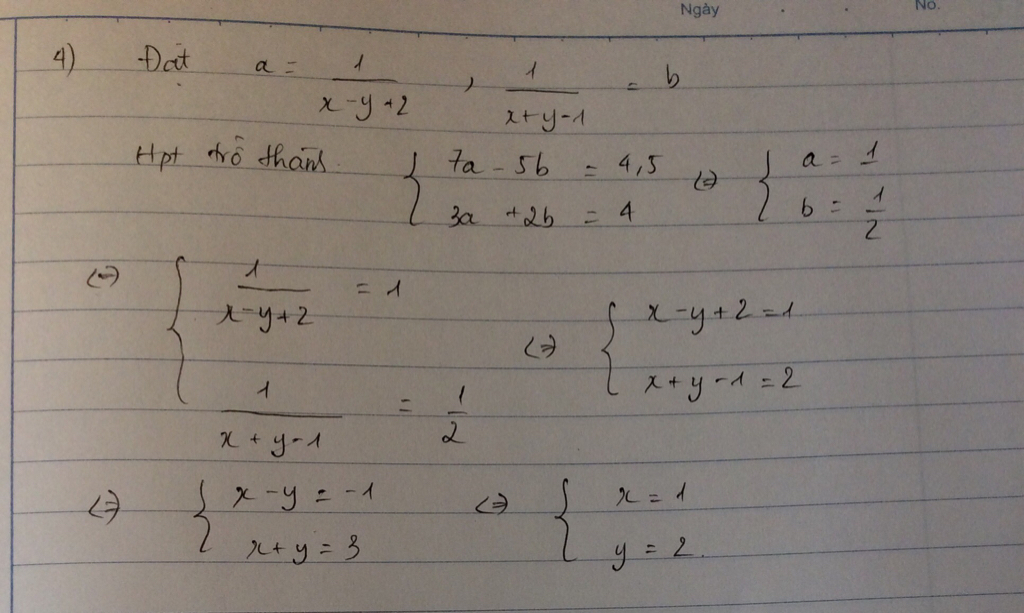 Ngày No.
4) Đặt a = 1/(x-y+2) , 1/(x+y-1) = b
Hpt trở thành { 7a - 5b = 4,5 ; 3a + 2b = 4 <=> { a = 1 ; b = 1/2
<=> { 1/(x-y+2) = 1 ; 1/(x+y-1) = 1/2 <=> { x-y+2=1 ; x+y-1=2
<=> { x-y = -1 ; x+y = 3 <=> { x = 1 ; y = 2.